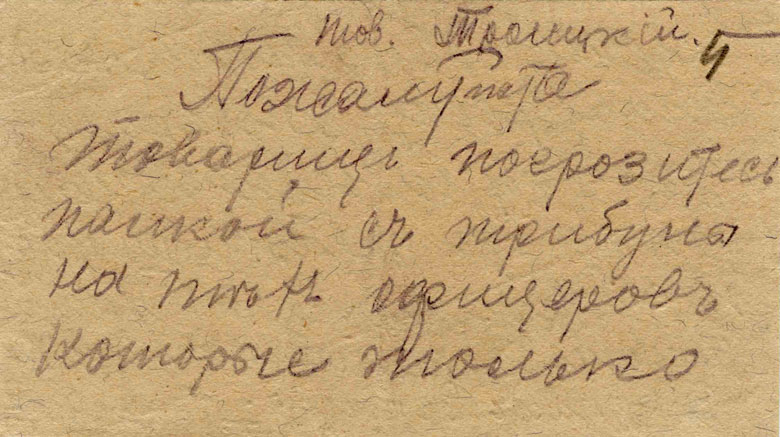 тов. Троицкій. 5
Пожалуйста
товарищь погрозитесь
палкой съ трибуны
на тѣхъ офицеровъ
которые только